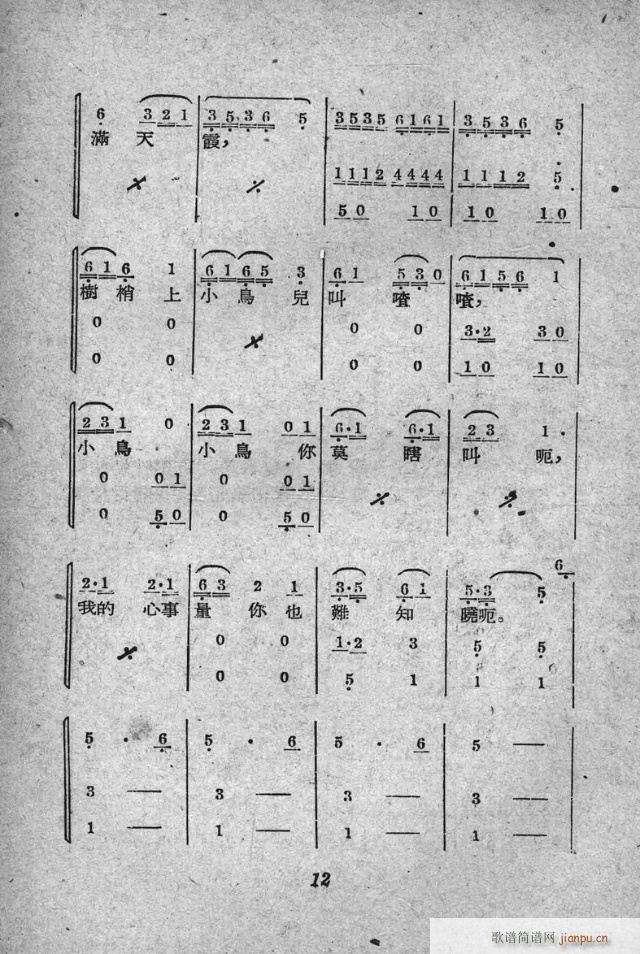 6 3 2 1 3 5 3 6 5 3535 6161 3536 5
滿 天 霞,
1112 4444 1112 5
50 10 10 10
616 1 6165 3 61 530 6156 1
樹梢上 小鳥兒 叫 喳 喳,
0 0 0 0 3·2 30
0 0 0 0 10 10
231 0 231 01 6·1 6·1 23 1·
小鳥 小鳥 你 莫 瞎 叫 呃,
0 01 0 01
0 50 0 50
6
2·1 2·1 63 2 1 3·5 6i 5·3 5
我的 心事 量 你 也 難 知 曉呃。
0 0 1·2 3 5 5
0 0 5 1 1 1
5 · 6 5 · 6 5 · 6 5 —
3 — 3 — 3 — 3 —
1 — 1 — 1 — 1 —
12
歌谱简谱网 jianpu.cn